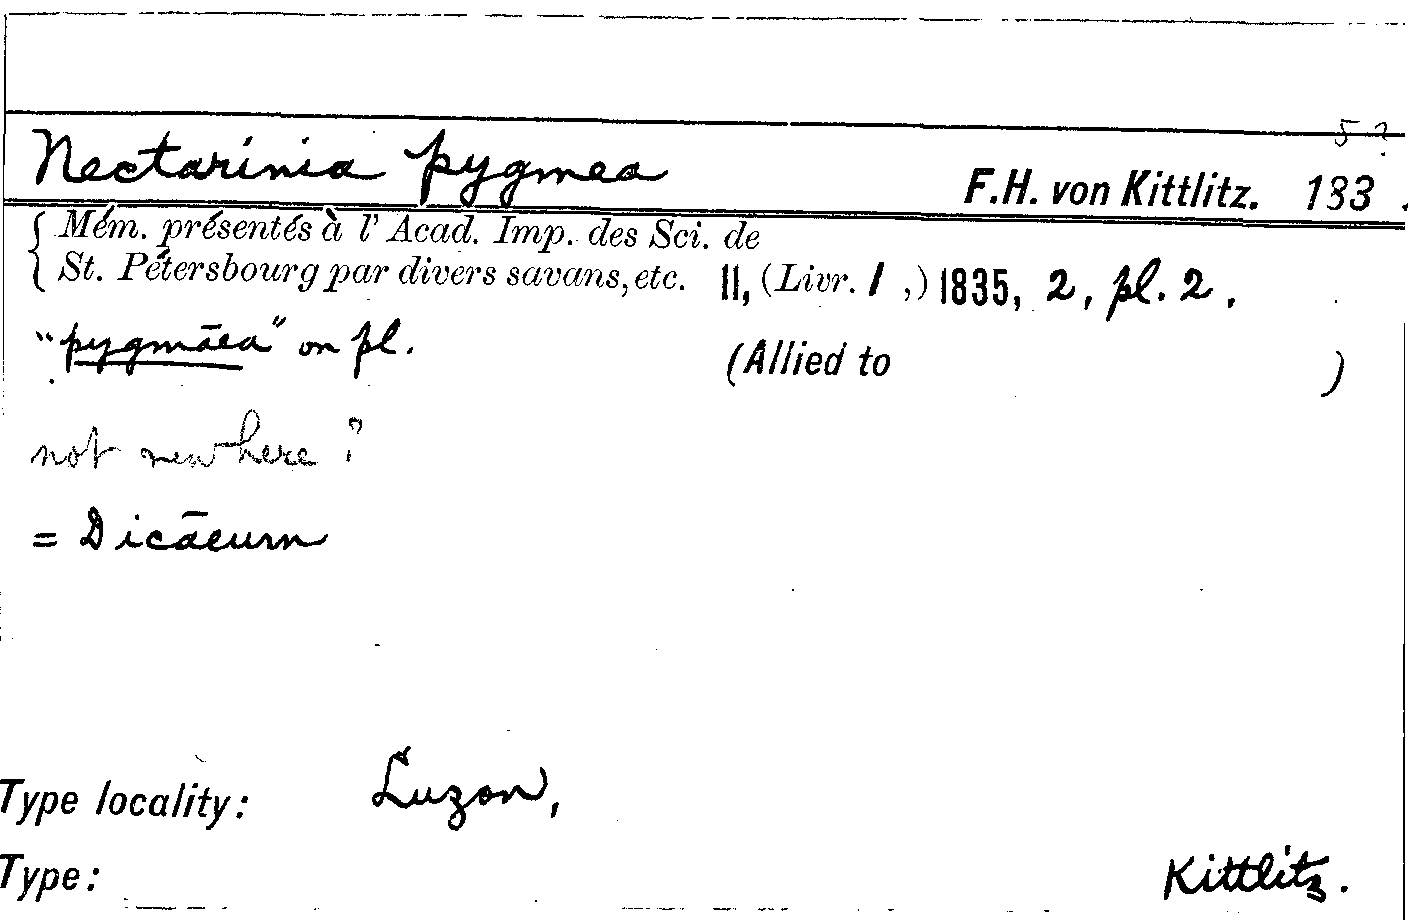 5?
Nectarinia pygmea F.H. von Kittlitz. 183 .
{ Mém. présentés à l' Acad. Imp. des Sci. de
{ St. Pétersbourg par divers savans, etc. II, (Livr. 1 ,) 1835, 2, pl. 2.
"pygmāea" on pl. (Allied to )
not new here?
= Dicāeum
Type locality: Luzon,
Type: Kittlitz.